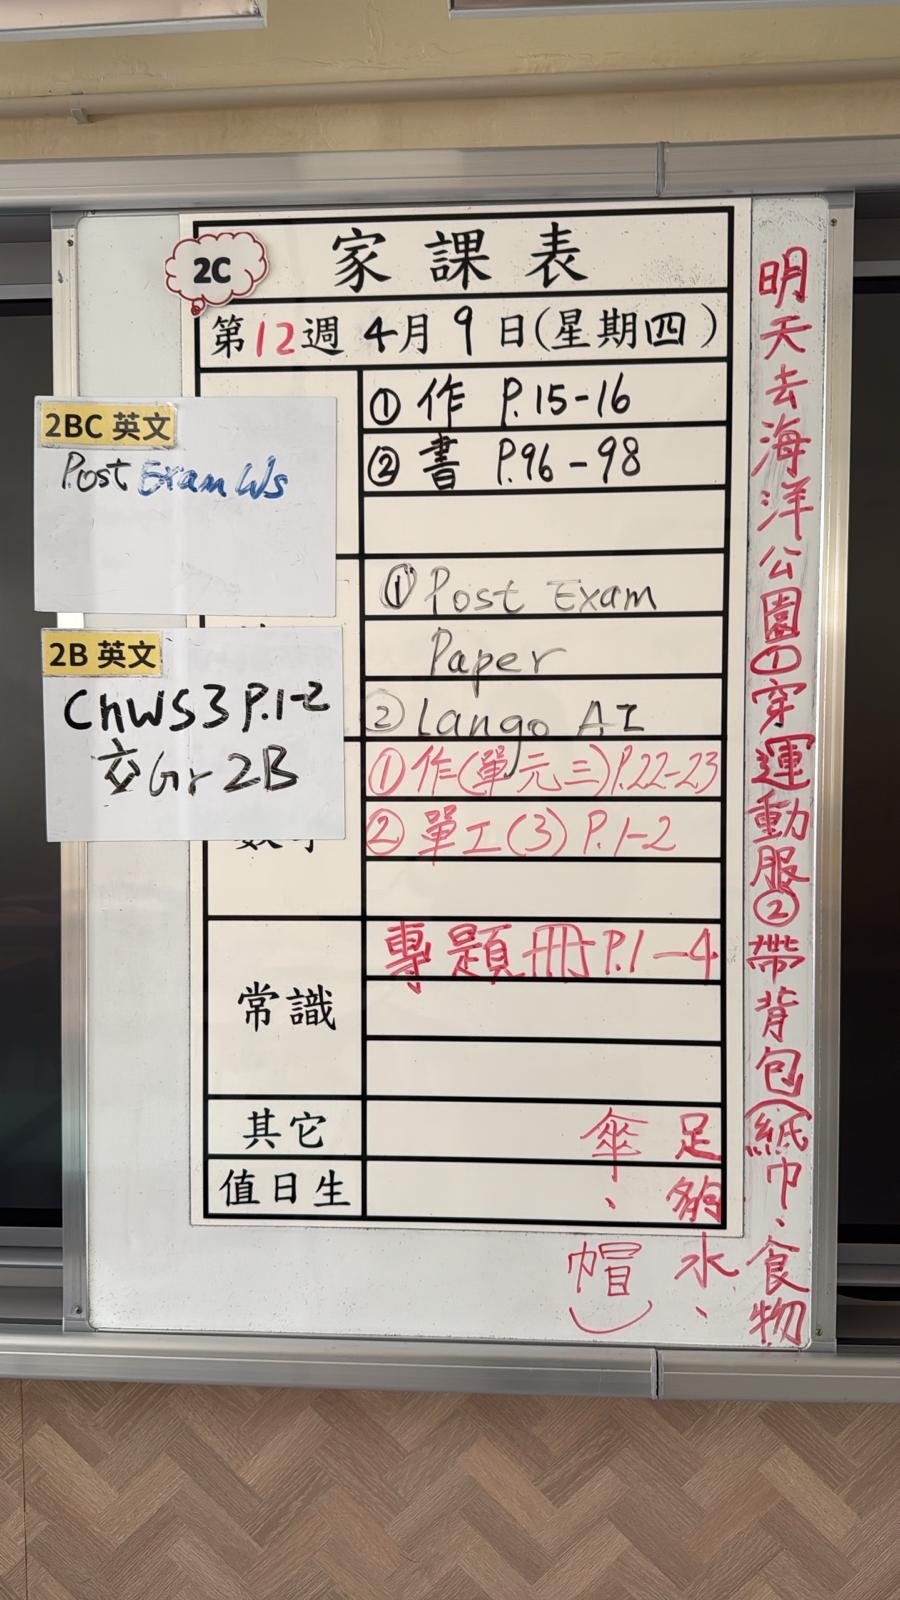 2C
家課表
第12週 4月9日(星期四)
① 作 P.15-16
② 書 P.96-98
2BC 英文
Post Exam Ws
① Post Exam
Paper
② Lango AI
2B 英文
ChWS3 P.1-2
交Gr 2B
① 作(單元三)P.22-23
② 單工(3) P.1-2
常識
專題冊P.1-4
其它
值日生
明天去海洋公園①穿運動服②帶背包(紙巾、食物
足夠水、
傘、帽)